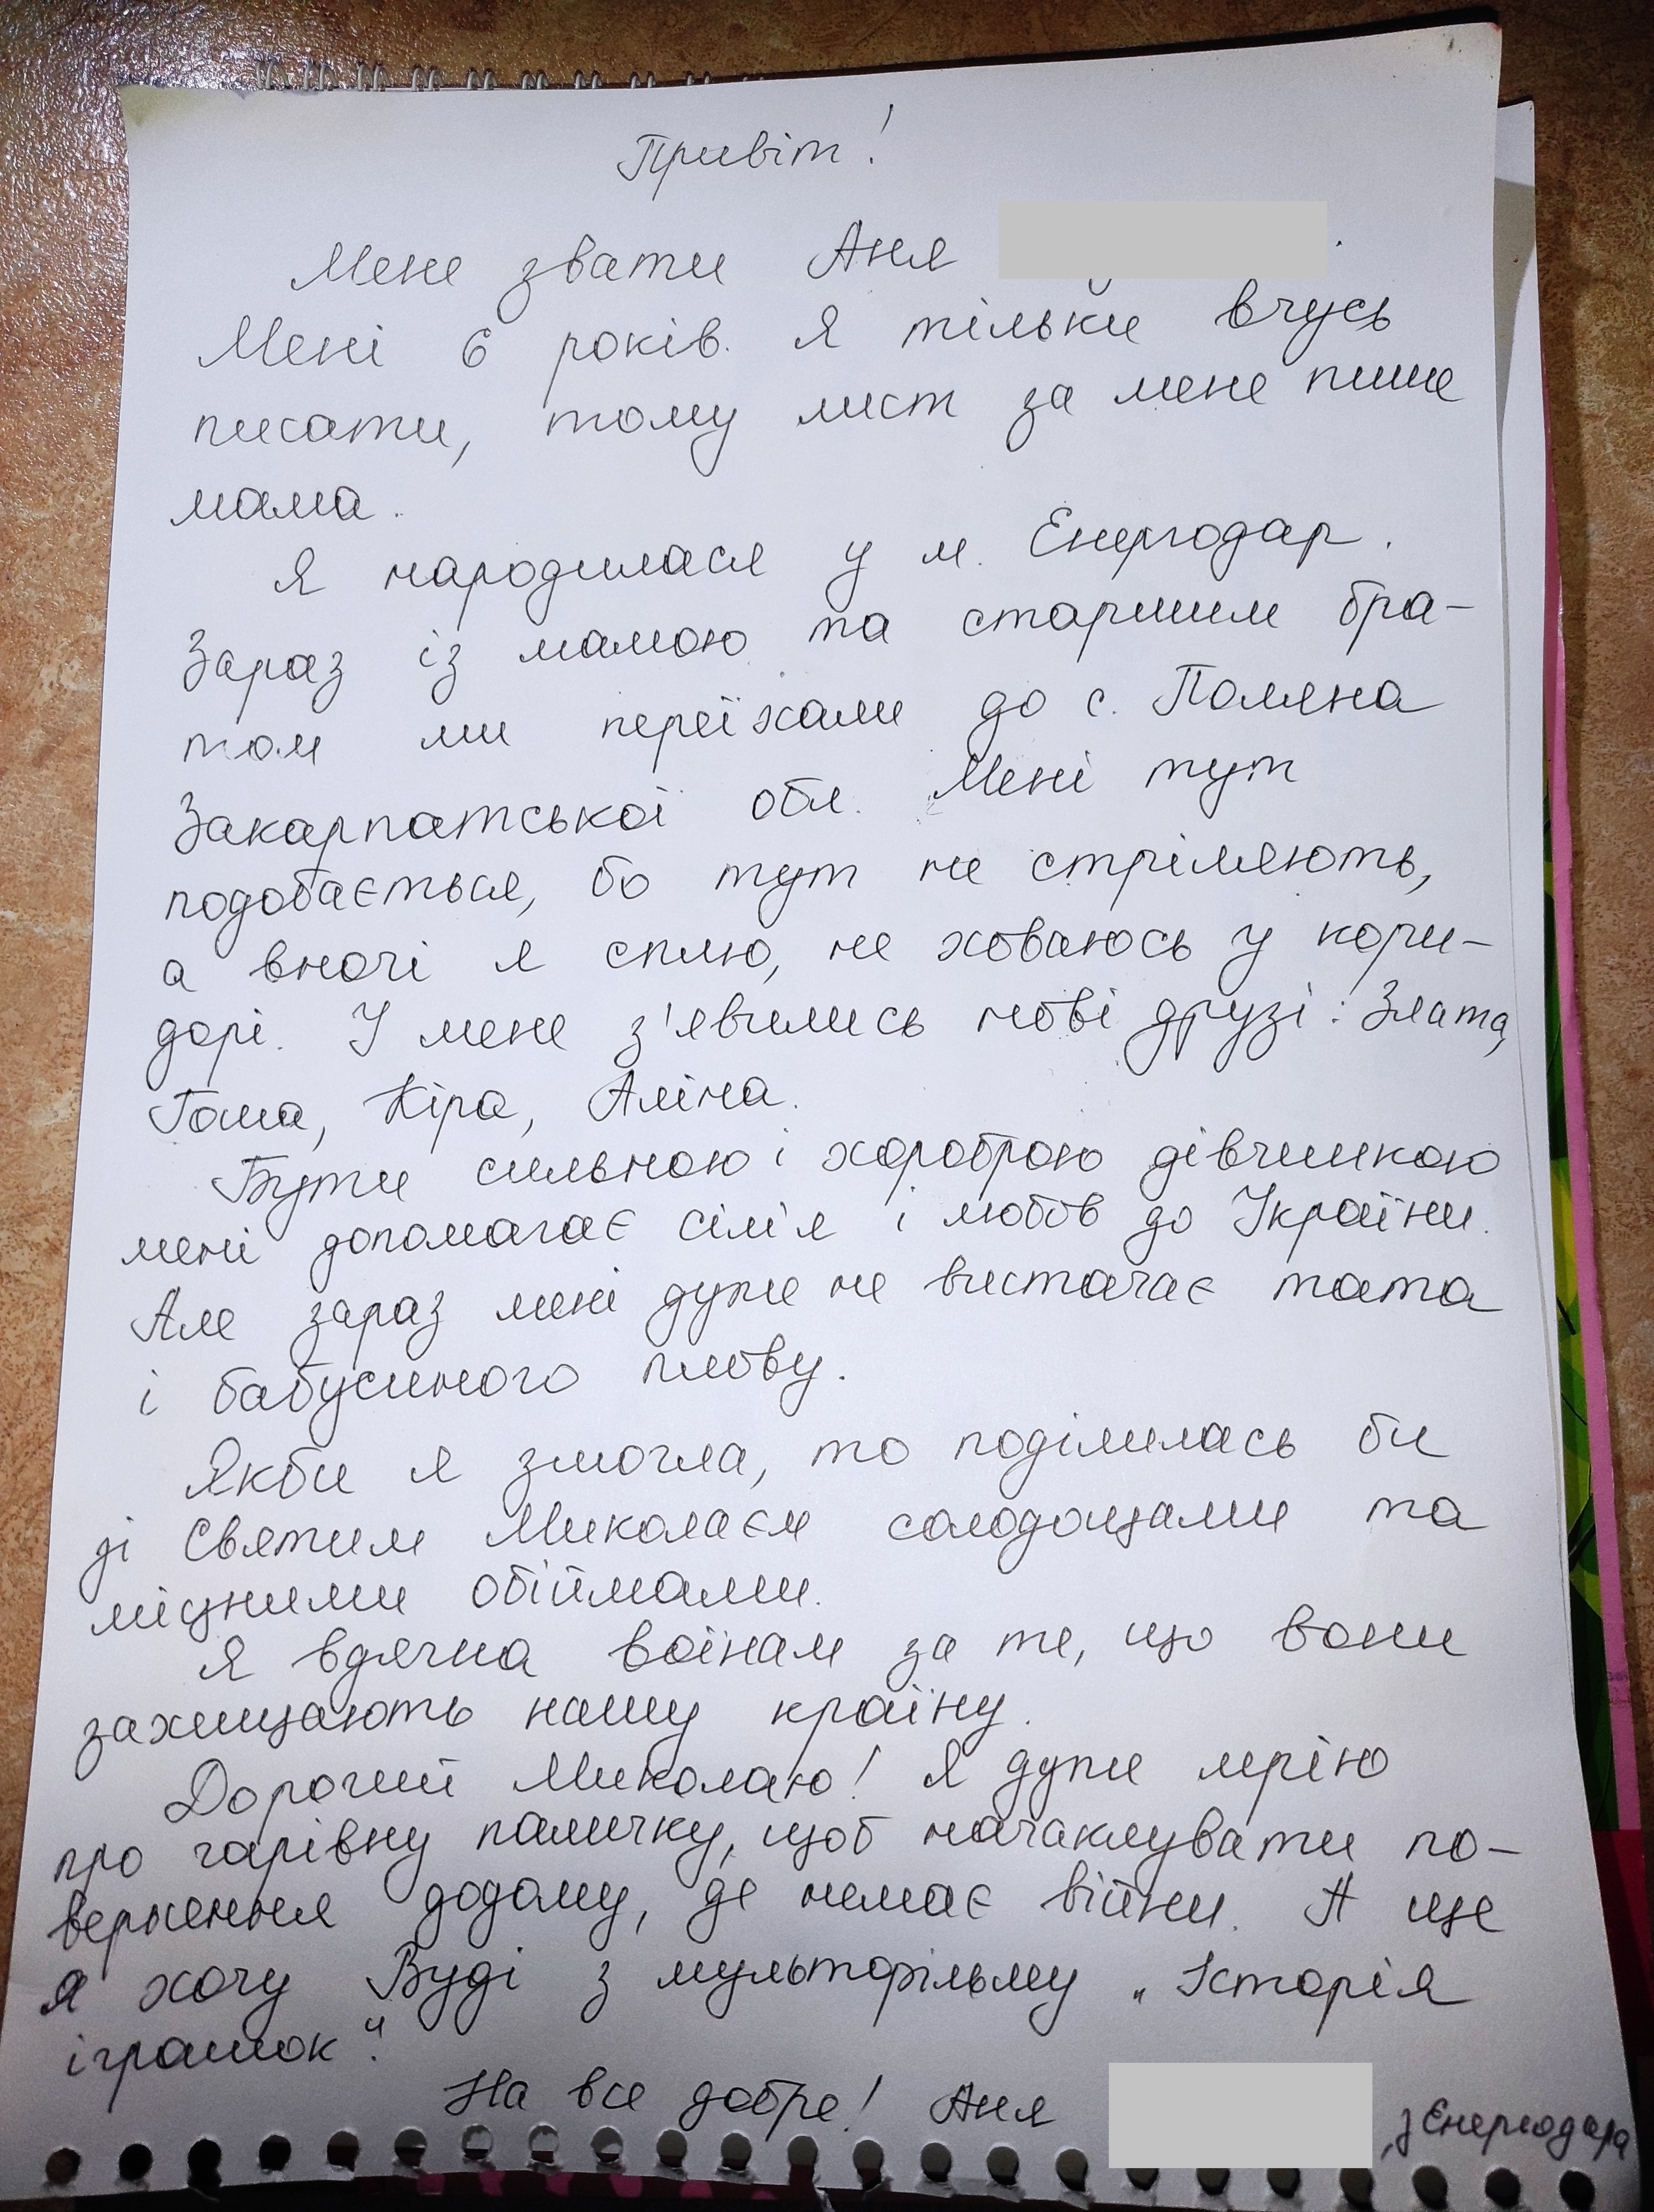 Привіт!
Мене звати Аня .
Мені 6 років. Я тільки вчусь
писати, тому лист за мене пише
мама.
Я народилася у м. Енергодар.
Зараз із мамою та старшим бра-
том ми переїхали до с. Поляна
Закарпатської обл. Мені тут
подобається, бо тут не стріляють,
а вночі я сплю, не ховаюсь у кори-
дорі. У мене з'явились нові друзі: Злата,
Тома, Кіра, Аліна.
Бути сильною і хороброю дівчинкою
мені допомагає сім'я і любов до України.
Але зараз мені дуже не вистачає тата
і бабусиного плову.
Якби я змогла, то поділилась би
зі Святим Миколаєм солодощами та
міцними обіймами.
Я вдячна воїнам за те, що вони
захищають нашу країну.
Дорогий Миколаю! Я дуже мрію
про чарівну паличку, щоб начаклувати по-
вернення додому, де немає війни. А ще
я хочу Вуді з мультфільму „Історія
іграшок“.
На все добре! Аня , з Єнергодара